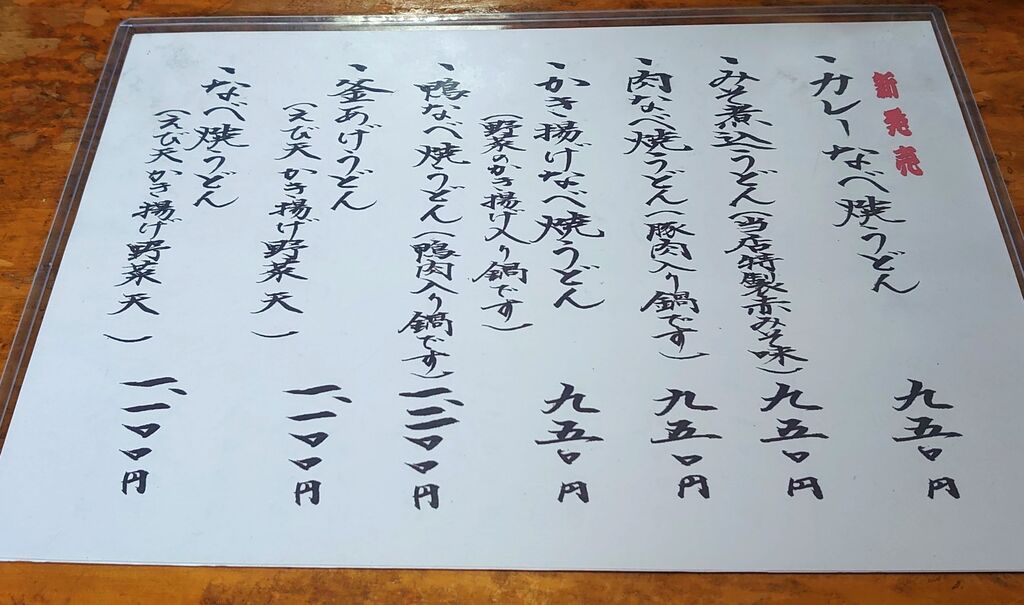 新発売
・カレーなべ焼うどん 九五〇円
・みそ煮込うどん(当店特製赤みそ味) 九五〇円
・肉なべ焼うどん(豚肉入り鍋です) 九五〇円
・かき揚げなべ焼うどん 九五〇円
(野菜のかき揚げ入り鍋です)
・鴨なべ焼うどん(鴨肉入り鍋です) 一、二〇〇円
・釜あげうどん
(えび天かき揚げ野菜天) 一、一〇〇円
・なべ焼うどん
(えび天かき揚げ野菜天) 一、一〇〇円